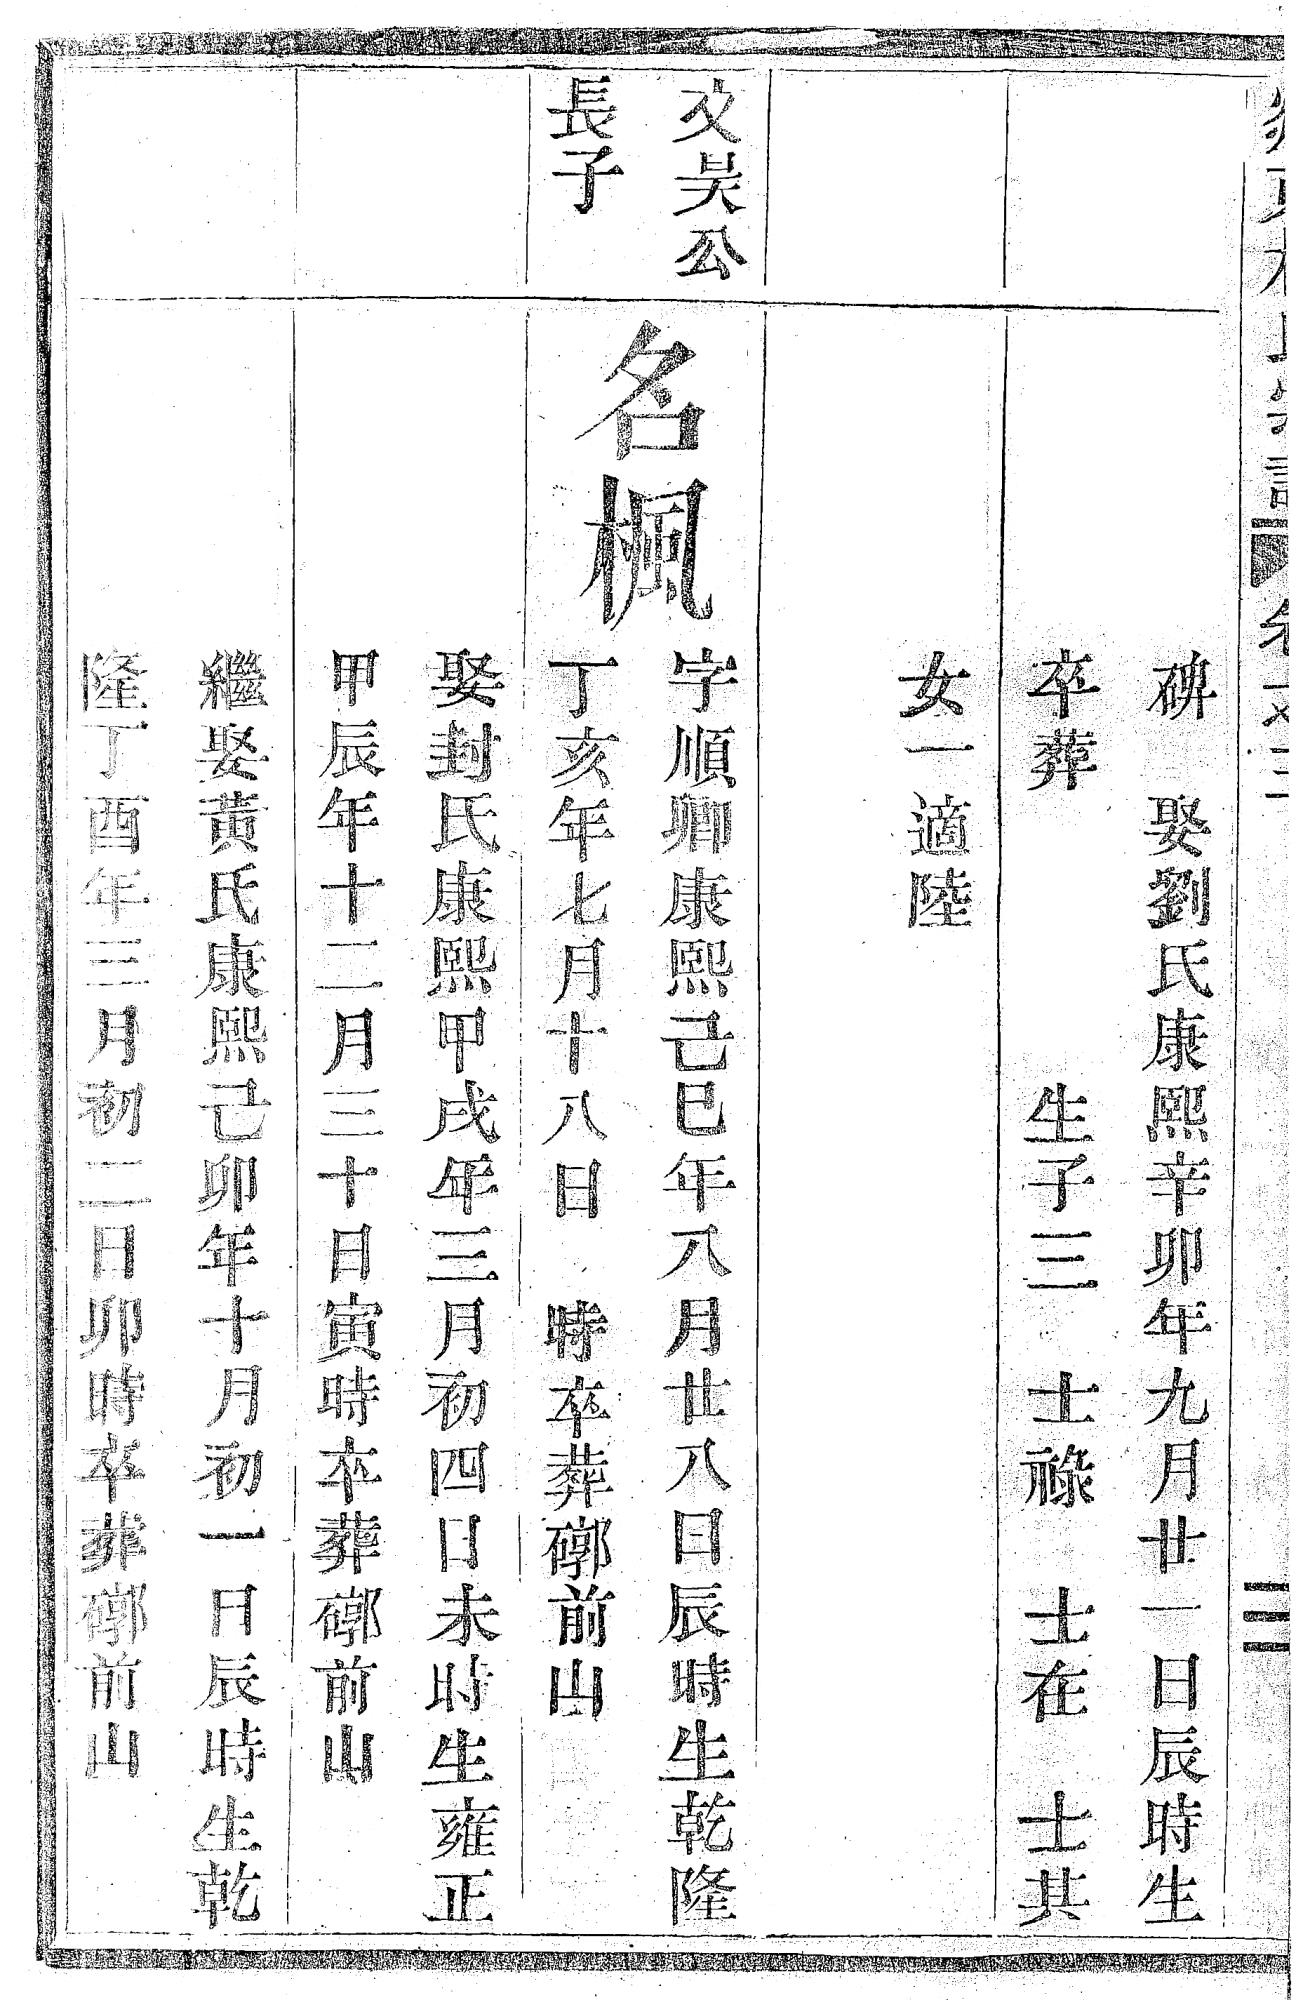 碑　娶劉氏康熙辛卯年九月廿一日辰時生
卒葬　生子三　士祿　士在　士其
女一適陸
文吴公
長子
名楓
字順卿康熙己巳年八月廿八日辰時生乾隆
丁亥年七月十八日　時卒葬礤前山
娶封氏康熙甲戌年三月初四日未時生雍正
甲辰年十二月三十日寅時卒葬礤前山
繼娶黃氏康熙己卯年十月初一日辰時生乾
隆丁酉年三月初二日卯時卒葬礤前山